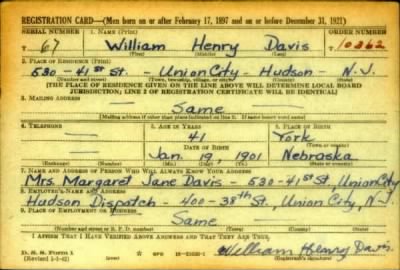 REGISTRATION CARD—(Men born on or after February 17, 1897 and on or before December 31, 1921)
SERIAL NUMBER 1. NAME (Print) ORDER NUMBER
T 67 William Henry Davis 10362
(First) (Middle) (Last)
2. PLACE OF RESIDENCE (Print)
530 - 41st St. - Union City - Hudson - N.J.
(Number and street) (Town, township, village, or city) (County) (State)
[THE PLACE OF RESIDENCE GIVEN ON THE LINE ABOVE WILL DETERMINE LOCAL BOARD
JURISDICTION; LINE 2 OF REGISTRATION CERTIFICATE WILL BE IDENTICAL]
3. MAILING ADDRESS
Same
[Mailing address if other than place indicated on line 2. If same insert word same]
4. TELEPHONE 5. AGE IN YEARS 6. PLACE OF BIRTH
41 York
DATE OF BIRTH (Town or county)
Jan. 19, 1901 Nebraska
(Exchange) (Number) (Mo.) (Day) (Yr.) (State or country)
7. NAME AND ADDRESS OF PERSON WHO WILL ALWAYS KNOW YOUR ADDRESS
Mrs. Margaret Jane Davis - 530-41st St., Union City
8. EMPLOYER'S NAME AND ADDRESS
Hudson Dispatch - 400-38th St., Union City, N.J.
9. PLACE OF EMPLOYMENT OR BUSINESS
Same
(Number and street or R. F. D. number) (Town) (County) (State)
I AFFIRM THAT I HAVE VERIFIED ABOVE ANSWERS AND THAT THEY ARE TRUE.
D. S. S. Form 1
(Revised 1-1-42) GPO William Henry Davis